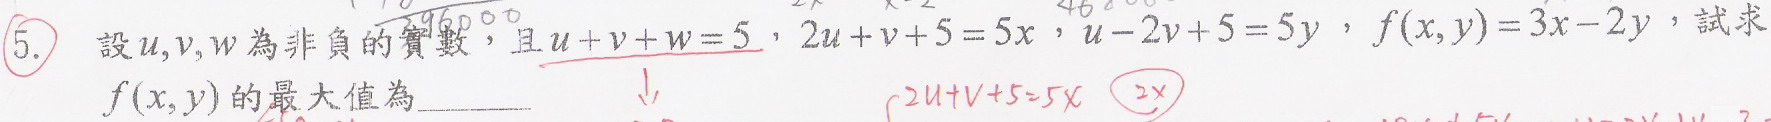 296000
5. 設u,v,w為非負的實數，且u+v+w=5，2u+v+5=5x，u-2v+5=5y，f(x,y)=3x-2y，試求
f(x,y)的最大值為______
2u+v+5=5x 2x